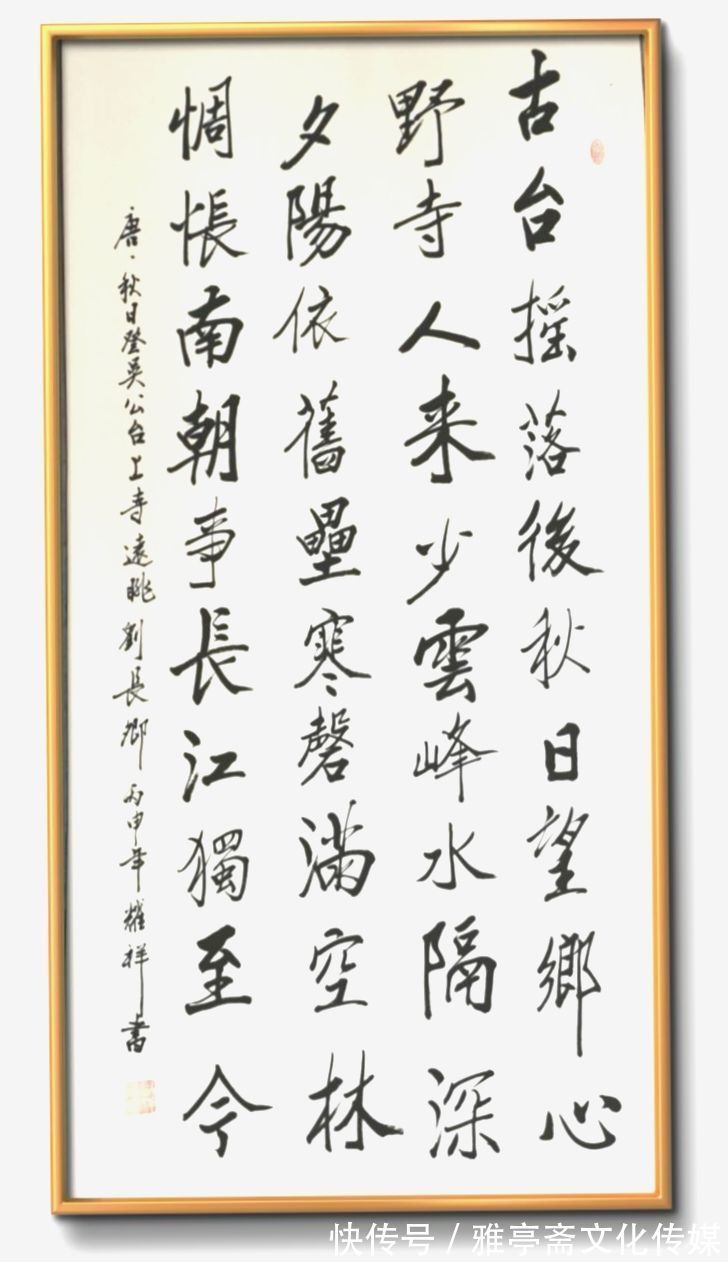 古台摇落後秋日望鄉心
野寺人来少雲峰水隔深
夕陽依舊壘寒磬滿空林
惆悵南朝事長江獨至今
唐·秋日登吴公台上寺遠眺劉長卿丙申年耀祥書
快传号/雅亭斋文化传媒